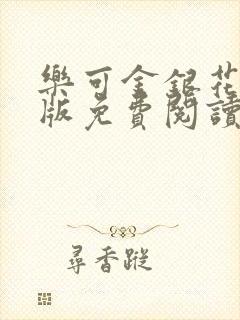 樂可金銀花
版免費閱讀
尋香蹤